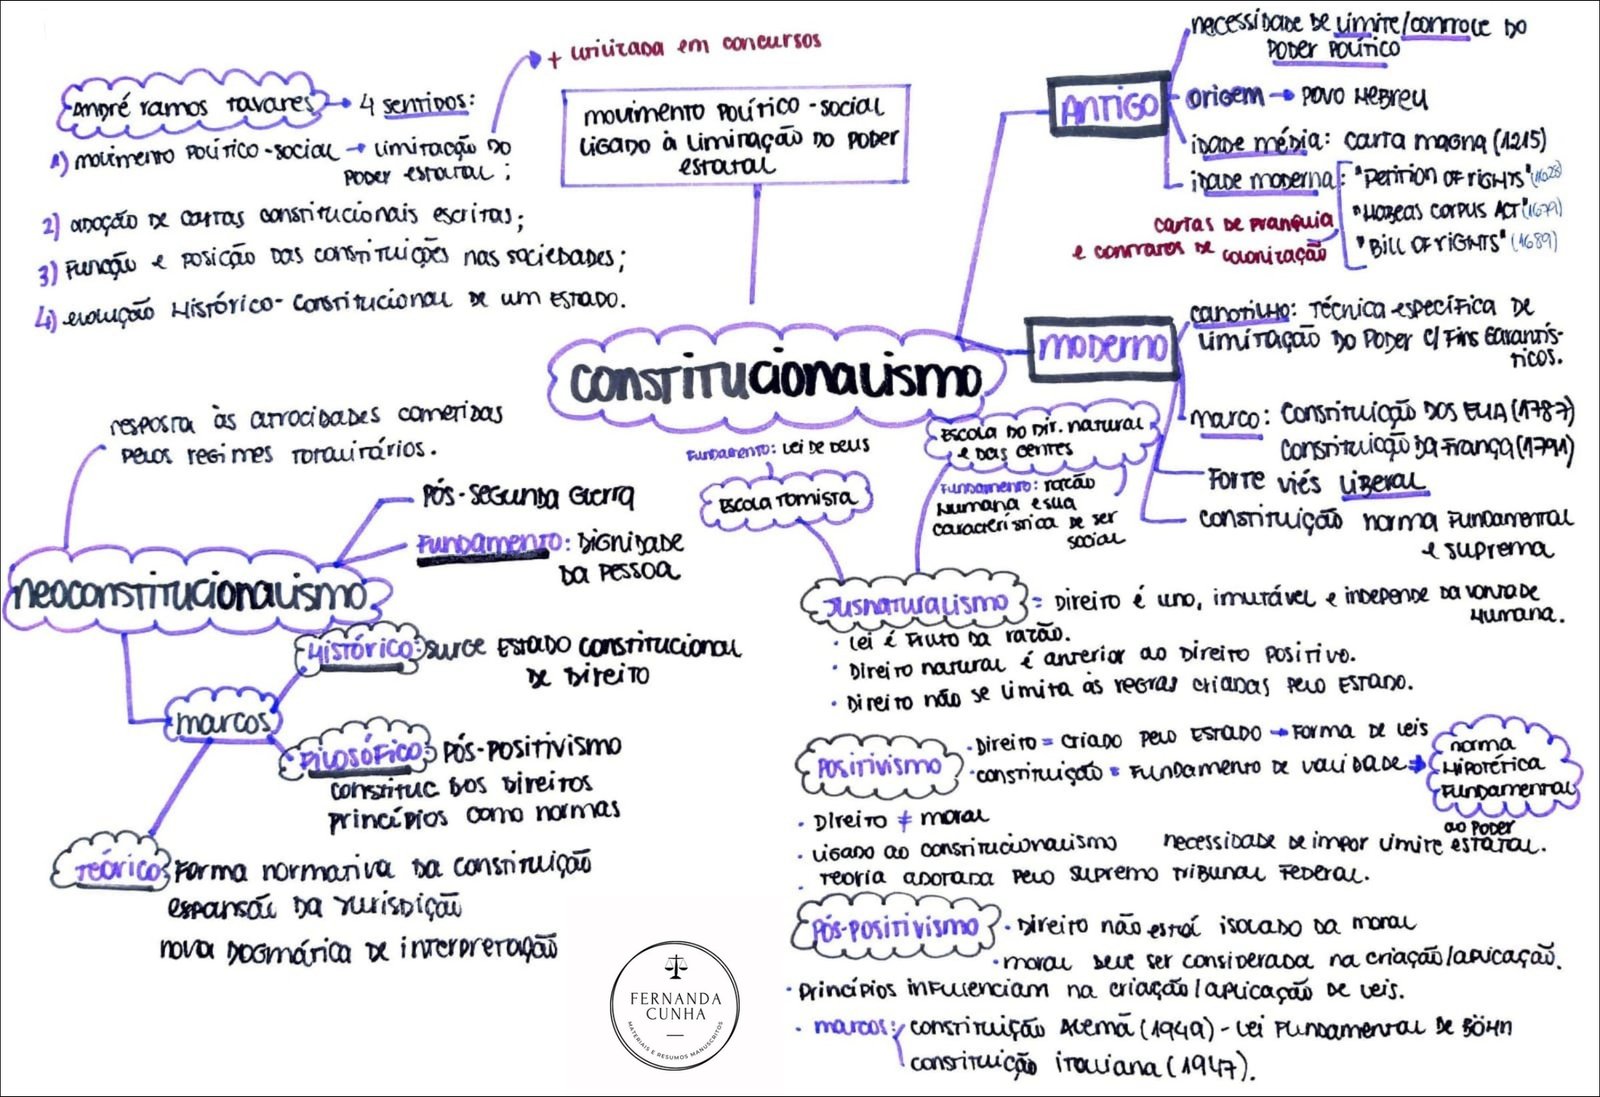 + utilizada em concursos
André Ramos Tavares → 4 sentidos:
1) movimento político-social → limitação do
poder estatal;
2) adoção de cartas constitucionais escritas;
3) função e posição das constituições nas sociedades;
4) evolução histórico-constitucional de um estado.
movimento político-social
ligado à limitação do poder
estatal
constitucionalismo
ANTIGO
necessidade de limite/controle do
poder político
origem → povo hebreu
idade média: carta magna (1215)
idade moderna: "Petition of rights" (1628)
"Habeas corpus act" (1679)
"Bill of rights" (1689)
cartas de franquia
e contratos de colonização
moderno
canotilho: técnica específica de
limitação do poder c/ fins garantís-
ticos.
marco: constituição dos EUA (1787)
constituição da França (1791)
forte viés liberal
constituição norma fundamental
e suprema
resposta às atrocidades cometidas
pelos regimes totalitários.
pós-segunda guerra
fundamento: dignidade
da pessoa
neoconstitucionalismo
marcos
histórico: surge estado constitucional
de direito
filosófico: pós-positivismo
constituc dos direitos
princípios como normas
teórico: forma normativa da constituição
expansão da jurisdição
nova dogmática de interpretação
fundamento: lei de Deus
escola tomista
escola do dir. natural
e das gentes
fundamento: razão
humana e sua
característica de ser
social
jusnaturalismo = direito é uno, imutável e independe da vontade
humana.
· lei é fruto da razão.
· direito natural é anterior ao direito positivo.
· direito não se limita às regras criadas pelo estado.
positivismo
· direito = criado pelo estado → forma de leis
· constituição = fundamento de validade →
norma
hipotética
fundamental
· direito ≠ moral
· ligado ao constitucionalismo necessidade de impor limite ao poder estatal.
· teoria adotada pelo supremo tribunal federal.
pós-positivismo · direito não está isolado da moral
· moral deve ser considerada na criação/aplicação.
· princípios influenciam na criação/aplicação de leis.
· marcos: constituição alemã (1949) - lei fundamental de Böhn
constituição italiana (1947).
FERNANDA
CUNHA
MATERIAIS E RESUMOS MANUSCRITOS